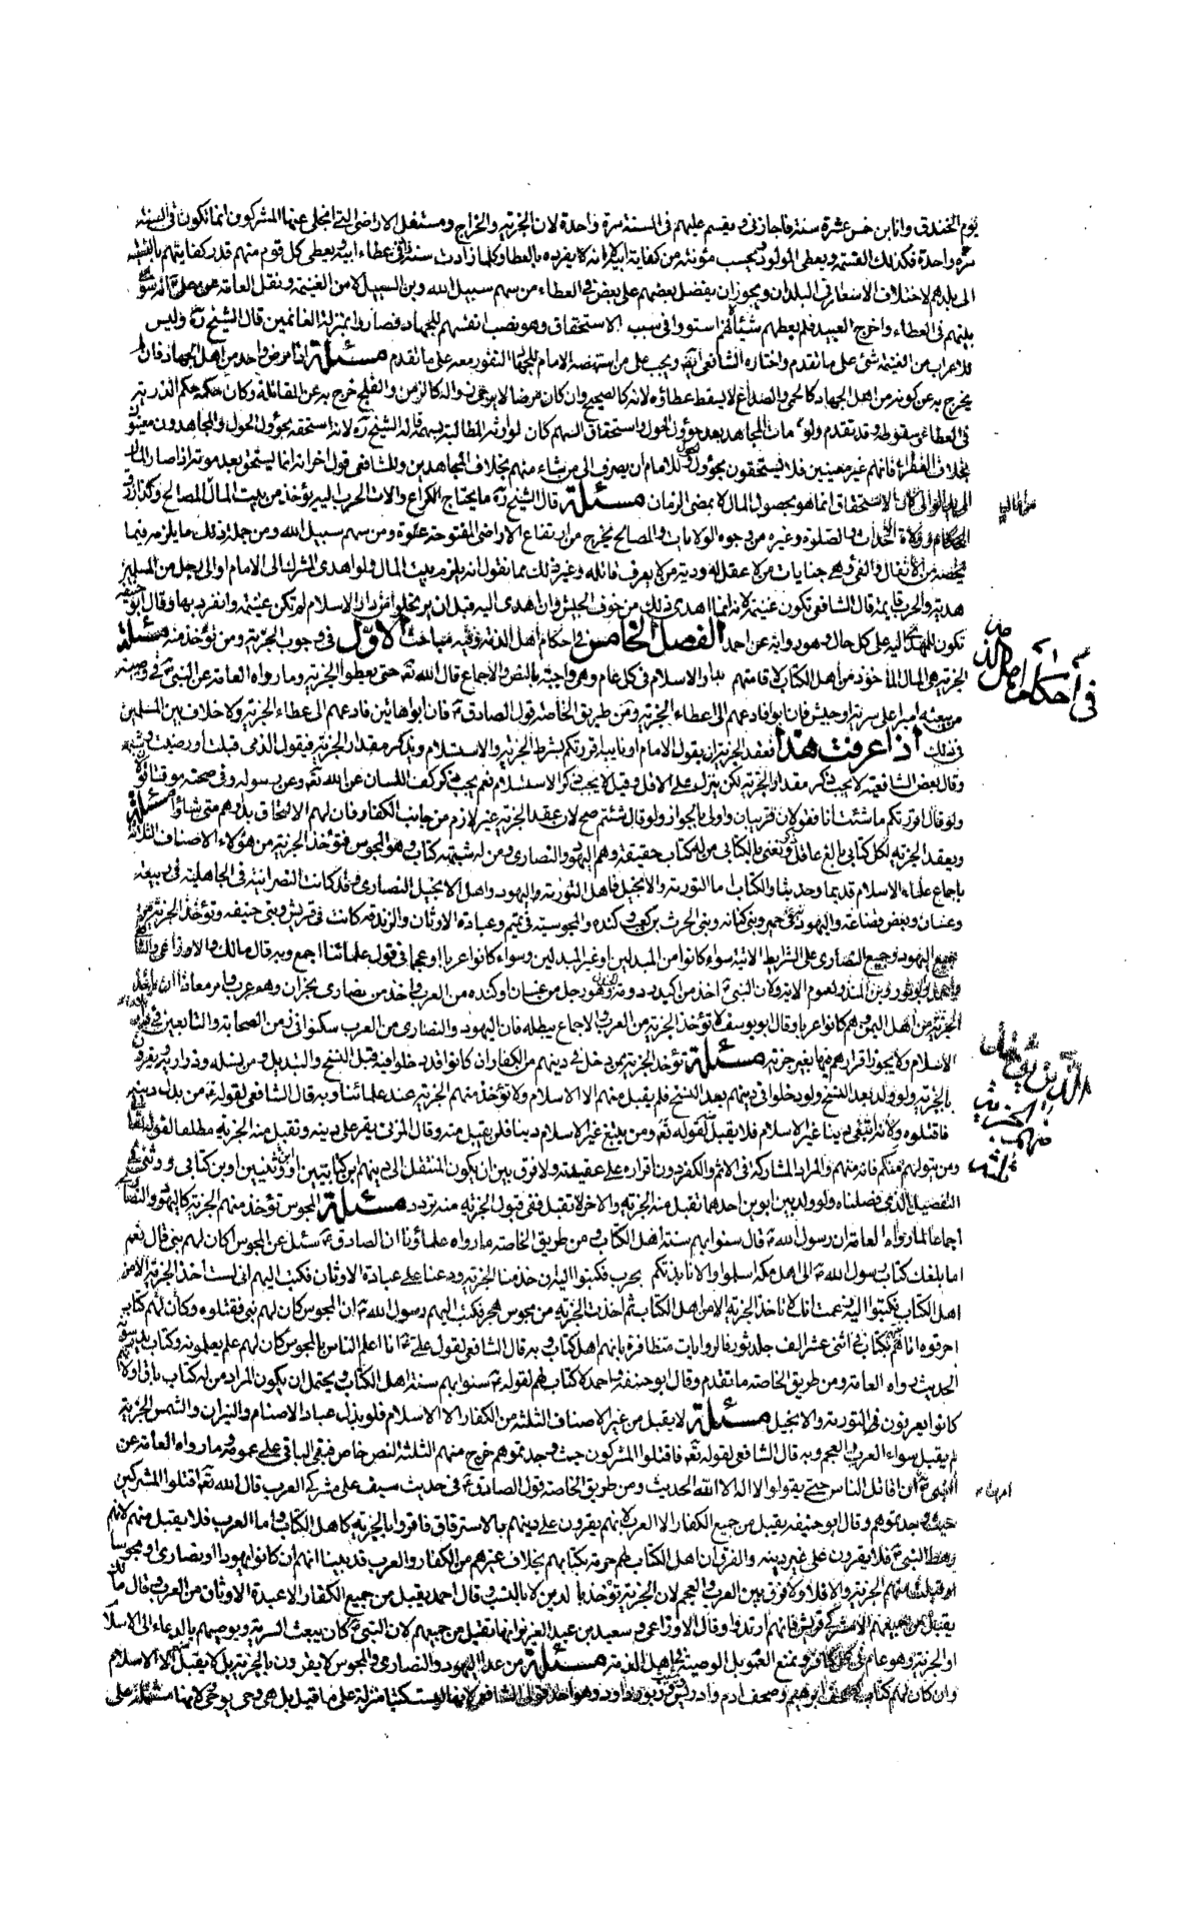 يوم الخندق وانا ابن خمس عشرة سنة فاجازنى ويقسم عليهم فى السنة مرة واحدة لان الجزية والخراج ومستغل الاراضى التى انجلى عنها المشركون انما تكون فى السنة
مرة واحدة فكذلك القسمة ويعطى المولود بحسب مؤنته من كفاية ابيه لا انه لا يفرده بالعطاء وكلما زادت سنه زاد فى عطاء ابيه ويعطى كل قوم منهم قدر كفايتهم بالنسبة
الى بلدهم لاختلاف الاسعار فى البلدان ويجوز ان يفضل بعضهم على بعض فى العطاء من سهم سبيل الله وابن السبيل لا من الغنيمة ونقل العامة عن على انه سوّى
بينهم فى العطاء واخرج العبيد فلم يعطهم شيئا لانهم استووا فى سبب الاستحقاق وهو نصب انفسهم للجهاد فصاروا بمنزلة الغانمين قال الشيخ ره وليس
للاعراب من الغنيمة شئ على ما تقدم واختاره الشافعى ايضا ويجب على من استنهضه الامام للجهاد النفور معه على ما تقدم مسئلة اذا مرض واحد من اهل الجهاد فان لم
يخرج به عن كونه من اهل الجهاد كالحمى والصداع لا يسقط عطاؤه لانه كالصحيح وان كان مرضا لا يرجى زواله كالزمن والفلج خرج به عن المقاتلة وكان حكمه حكم الذرية
فى العطاء وسقوطه وقد تقدم ولو مات المجاهد بعد حؤول الحول واستحقاق السهم كان لوارثه المطالبة بسهمه قاله الشيخ ره لانه استحقه بحؤول الحول والمجاهدون معينون
بخلاف الفقراء فانهم غير معينين فلا يستحقون بحؤول الحول للامام ان يصرف الى من شاء منهم بخلاف المجاهدين وللشافعى قول اخر انه انما يستحق بعد موته اذا صار المال
الى الوالى لان الاستحقاق انما هو بحصول المال لا بمضى الزمان مسئلة قال الشيخ ره ما يحتاج الكراع والات الحرب اليه يؤخذ من بيت المال المصالح وكذا رزق
الحكام وولاة الاحداث والصلوة وغيره من وجوه الولايات والمصالح يخرج من ارتفاع الاراضى المفتوحة عنوة ومن سهم سبيل الله ومن جملة ذلك ما يلزمه فيما
يخصه من الانفال والفئ وهى جنايات من لا عقل له ودية من لا يعرف قاتله وغير ذلك مما نقول انه يلزم بيت المال ولو اهدى المشرك الى الامام او الى رجل من المسلمين
هدية والحرب قايمة قال الشافعى تكون غنيمة لانه انما اهدى ذلك من خوف الجيش وان اهدى اليه قبل ان يرتحلوا من دار الاسلام لم تكن غنيمة وانفرد بها وقال ابو حنيفة
تكون للمهدى اليه على كل حال وهو رواية عن احمد الفصل الخامس فى احكام اهل الذمة وفيه مباحث الاول فى وجوب الجزية ومن تؤخذ منه مسئلة
الجزية هى المال الماخوذ من اهل الكتاب لاقامتهم بدار الاسلام فى كل عام وهى واجبة بالنص والاجماع قال الله تعالى حتى يعطوا الجزية وما رواه العامة عن النبى فى وصيته
من يبعثه اميرا على سرية او جيش فان ابوا فادعهم الى اعطاء الجزية ومن طريق الخاصة قول الصادق ع فان ابوا هاتين فادعهم الى عطاء الجزية ولا خلاف بين المسلمين
فى ذلك اذا عرفت هذا فعقد الجزية ان يقول الامام او نايبه اقررتكم بشرط الجزية والاستسلام ويذكر مقدار الجزية فيقول الذمى قبلت او رضيت وشبهه
وقال بعض الشافعية لا يجب ذكر مقدار الجزية لكن ينزل على الاقل وقيل لا يجب ذكر الاستسلام نعم يجب ذكر كف اللسان عن الله تع وعن رسوله وفى صحته موقتا قولان
ولو قال اقررتكم ما شئت انا فقولان قريبان واولى بالجواز ولو قال شئتم صح لان عقد الجزية غير لازم من جانب الكفار فان لهم الالتحاق بدارهم متى شاؤا مسئلة
ويعقد الجزية لكل كتابى بالغ عاقل ونعنى بالكتابى من له كتاب حقيقة وهم اليهود والنصارى ومن له شبهة كتاب وهو المجوس فتؤخذ الجزية من هؤلاء الاصناف الثلاثة
باجماع علماء الاسلام قديما وحديثا والكتاب اما التورية والانجيل فاهل التورية واليهود واهل الانجيل النصارى وقد كانت النصرانية فى الجاهلية فى ربيعة
وغسان وبعض قضاعة واليهودية فى حمير وبنى كنانة وبنى الحرث بن كعب وكنده والمجوسية فى تميم وعبادة الاوثان والزندقة كانت فى قريش وبنى حنيفه وتؤخذ الجزية من
جميع اليهود وجميع النصارى على الشرايط الاتية سواء كانوا من المبدلين او غير المبدلين وسواء كانوا عربا او عجما فى قول علمائنا اجمع وبه قال مالك والاوزاعى والشافعى
وابو ثور وابن المنذر لعموم الاية ولان النبى اخذ من اكيدر دومة وهو رجل من غسان او كنده من العرب واخذ من نصارى نجران وهم عرب وامر معاذا ان ياخذ
الجزية من اهل اليمن وهم كانوا عربا وقال ابو يوسف لا تؤخذ الجزية من العرب والاجماع يبطله فان اليهود والنصارى من العرب سكنوا فى زمن الصحابة والتابعين فى بلاد
الاسلام ولا يجوز اقرارهم فيها بغير جزية مسئلة تؤخذ الجزية ممن دخل فى دينهم من الكفار ان كانوا قد دخلوا فيه قبل النسخ والتبديل ومن نسله وذراريه يقرون
بالجزية ولو ولد بعد النسخ ولو دخلوا فى دينهم بعد النسخ فلم يقبل منهم الا الاسلام ولا تؤخذ منهم الجزية عند علمائنا وبه قال الشافعى لقوله من بدل دينه
فاقتلوه ولانه ابتغى دينا غير الاسلام فلا يقبل لقوله تع ومن يبتغ غير الاسلام دينا فلن يقبل منه وقال المزنى يقر على دينه وتقبل منه الجزية مطلقا لقوله تعالى
ومن يتولهم منكم فانه منهم والمراد المشاركة فى الاثم والكفر دون اقراره على عقيدته ولا فرق بين ان يكون المنتقل الى دينهم ابن كتابيين او وثنيين او ابن كتابى ووثنى
التفصيل الذى فصلناه ولو ولد بين ابوين احدهما تقبل منه الجزية والاخر لا تقبل ففى قبول الجزية منه تردد مسئلة المجوس تؤخذ منهم الجزية كاليهود والنصارى
اجماعا لما رواه العامة ان رسول الله قال سنوا بهم سنة اهل الكتاب ومن طريق الخاصة ما رواه علماؤنا ان الصادق ع سئل عن المجوس اكان لهم نبى قال نعم
اما بلغك كتاب رسول الله الى اهل مكة اسلموا والا نابذتكم بحرب فكتبوا اليه ان خذ منا الجزية ودعنا على عبادة الاوثان فكتب اليهم انى لست اخذ الجزية الا من
اهل الكتاب فكتبوا اليه زعمت انك لا تاخذ الجزية الا من اهل الكتاب ثم اخذت الجزية من مجوس هجر فكتب اليهم رسول الله ان المجوس كان لهم نبى فقتلوه وكان لهم كتاب
احرقوه اتاهم نبيهم بكتاب فى اثنى عشر الف جلد ثور فالروايات متظافرة بانهم اهل كتاب وبه قال الشافعى لقول على ع انا اعلم الناس بالمجوس كان لهم علم يعلمونه وكتاب يدرسونه
الحديث رواه العامة ومن طريق الخاصة ما تقدم وقال ابو حنيفة واحمد لا كتاب لهم لقوله سنوا بهم سنة اهل الكتاب ويحتمل ان يكون المراد من له كتاب باق او لانهم
كانوا يعرفون فى التورية والانجيل مسئلة لا يقبل من غير الاصناف الثلثة من الكفار الا الاسلام فلو بذل عباد الاصنام والنيران والشمس الجزية
لم يقبل سواء العرب والعجم وبه قال الشافعى لقوله تع فاقتلوا المشركين حيث وجدتموهم خرج منهم الثلثة النص خاص فبقى الباقى على عمومه وما رواه العامة عن
النبى ص امرت ان اقاتل الناس حتى يقولوا لا اله الا الله الحديث ومن طريق الخاصة قول الصادق ع فى حديث سيف على مشركى العرب قال الله تع اقتلوا المشركين
حيث وجدتموهم وقال ابو حنيفة يقبل من جميع الكفار الا العرب لانهم يقرون على دينهم بالاسترقاق فاقروا بالجزية كاهل الكتاب واما العرب فلا يقبل منهم لانهم
رهط النبى فلا يقرون على غير دينه والفرق ان اهل الكتاب لهم حرمة بكتابهم بخلاف غيرهم من الكفار والعرب قد بينا انهم ان كانوا يهودا او نصارى او مجوسا
قبلت منهم الجزية والا فلا ولا فرق بين العرب والعجم لان الجزية تؤخذ بالدين لا بالنسب وقال احمد يقبل من جميع الكفار الا عبدة الاوثان من العرب وقال مالك
يقبل من جميعهم الا مشركى قريش فانهم ارتدوا وقال الاوزاعى وسعيد بن عبد العزيز انها تقبل من جميعهم لان النبى كان يبعث السرية ويوصيهم بالدعاء الى الاسلام
او الجزية وهو عام فى كل كافر ونمنع العموم بل الوصية فى اهل الذمة مسئلة من عدا اليهود والنصارى والمجوس لا يقرون بالجزية بل لا يقبل الا الاسلام
وان كان لهم كتاب كصحف ابرهيم وصحف ادم وادريس وزبور داود وهو احد قولى الشافعى لانها ليست كتبا منزلة على ما قيل بل هى وحى يوحى لانها مشتملة على
فى احكام اهل الذمة